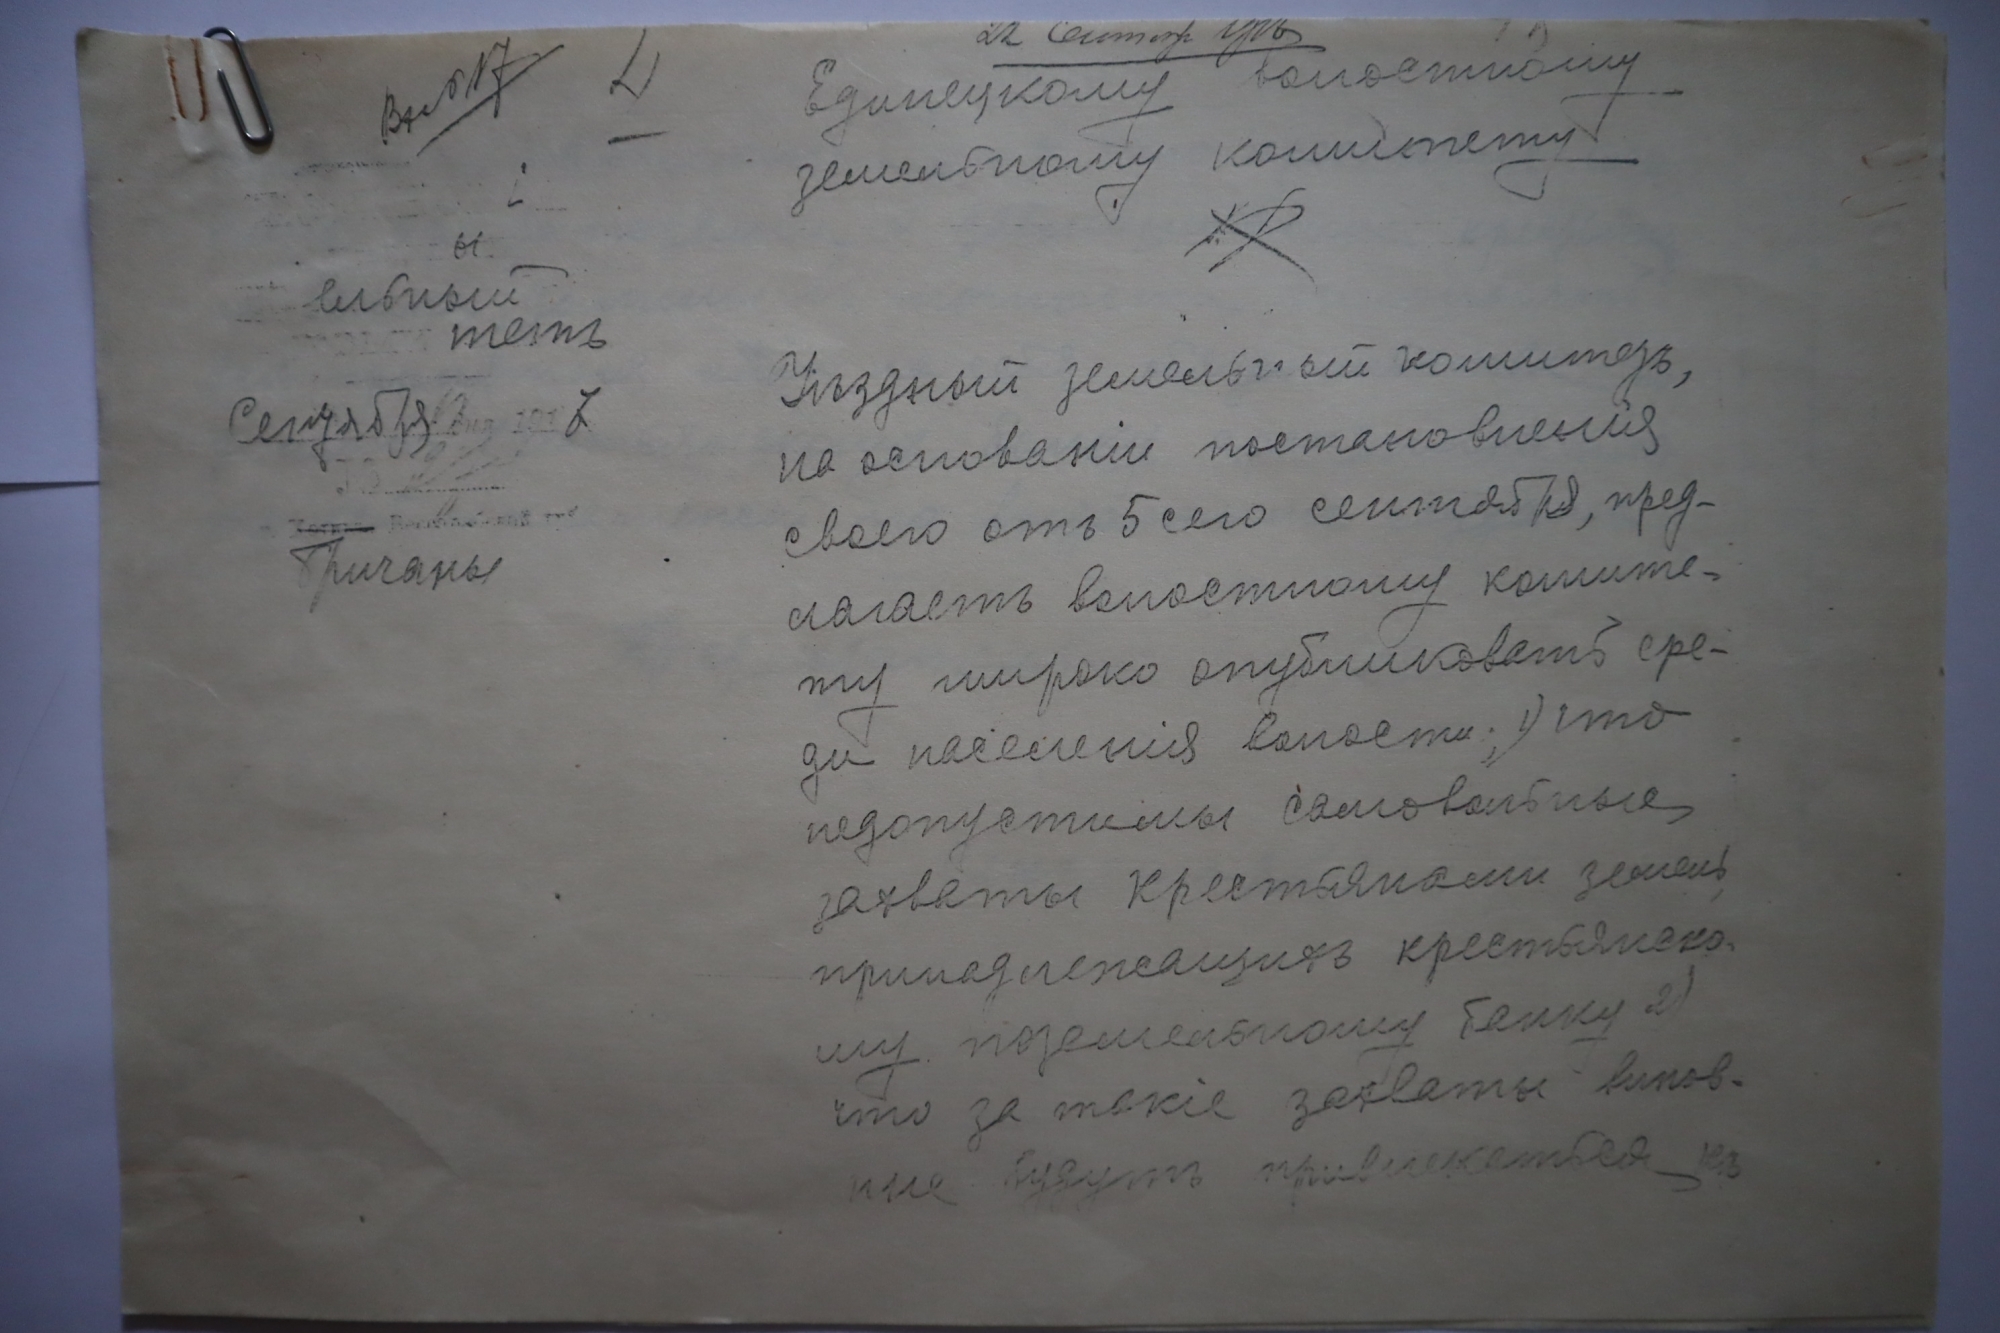 22 Сентяр
Единецкому волостному
земельному комитету
ы
ельный
тетъ
Сентября 191 7
Бессарабской губ.
Бричаны
Уѣздный земельный комитетъ,
на основаніи постановленія
своего отъ 5 сего сентября, пред-
лагаетъ волостному комите-
ту широко опубликовать сре-
ди населенія волости: 1) что
недопустимы самовольные
захваты крестьянами земель,
принадлежащихъ крестьянско-
му поземельному банку 2)
что за такіе захваты винов-
ные будутъ привлекаться къ